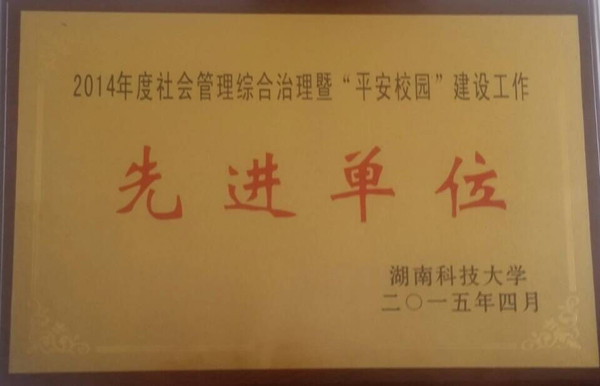 2014年度社会管理综合治理暨“平安校园”建设工作
先进单位
湖南科技大学
二〇一五年四月